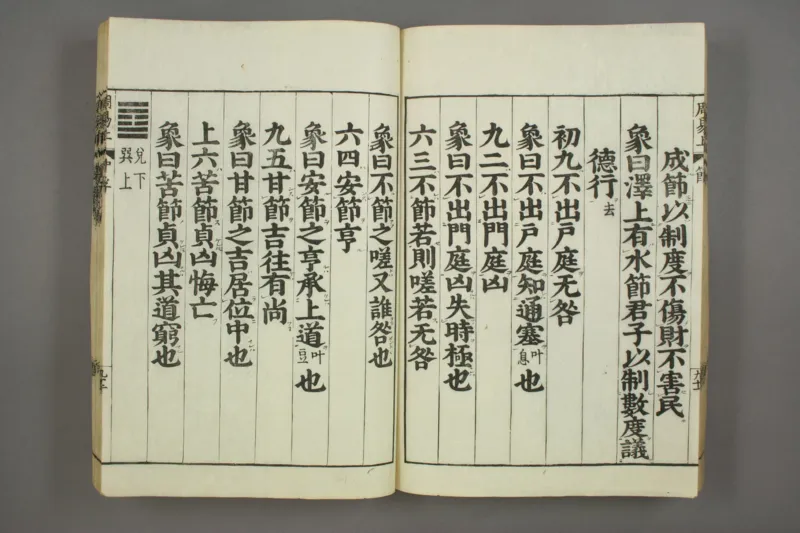 成節以制度不傷財不害民
象曰澤上有水節君子以制數度議
德行去
初九不出戶庭无咎
象曰不出戶庭知通塞叶息也
九二不出門庭凶
象曰不出門庭凶失時極也
六三不節若則嗟若无咎
象曰不節之嗟又誰咎也
六四安節亨
象曰安節之亨承上道叶豆也
九五甘節吉往有尚
象曰甘節之吉居位中也
上六苦節貞凶悔亡
象曰苦節貞凶其道窮也
兌下
巽上